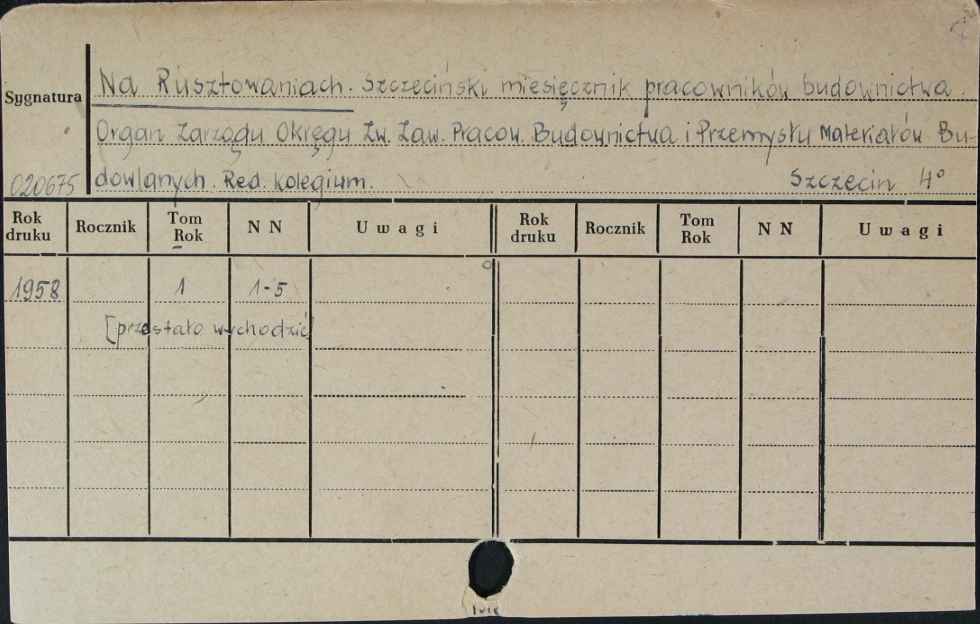 Sygnatura
020675
Na Rusztowaniach. Szczeciński miesięcznik pracowników budownictwa.
Organ Zarządu Okręgu Zw. Zaw. Pracow. Budownictwa i Przemysłu Materiałów Bu-
dowlanych. Red. kolegium. Szczecin 4°
Rok druku Rocznik Tom Rok NN Uwagi Rok druku Rocznik Tom Rok NN Uwagi
1958 1 1-5
[przestało wychodzić]